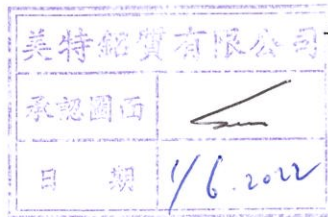 美特鋁質有限公司
承認圖面
日 期 1/6.2022